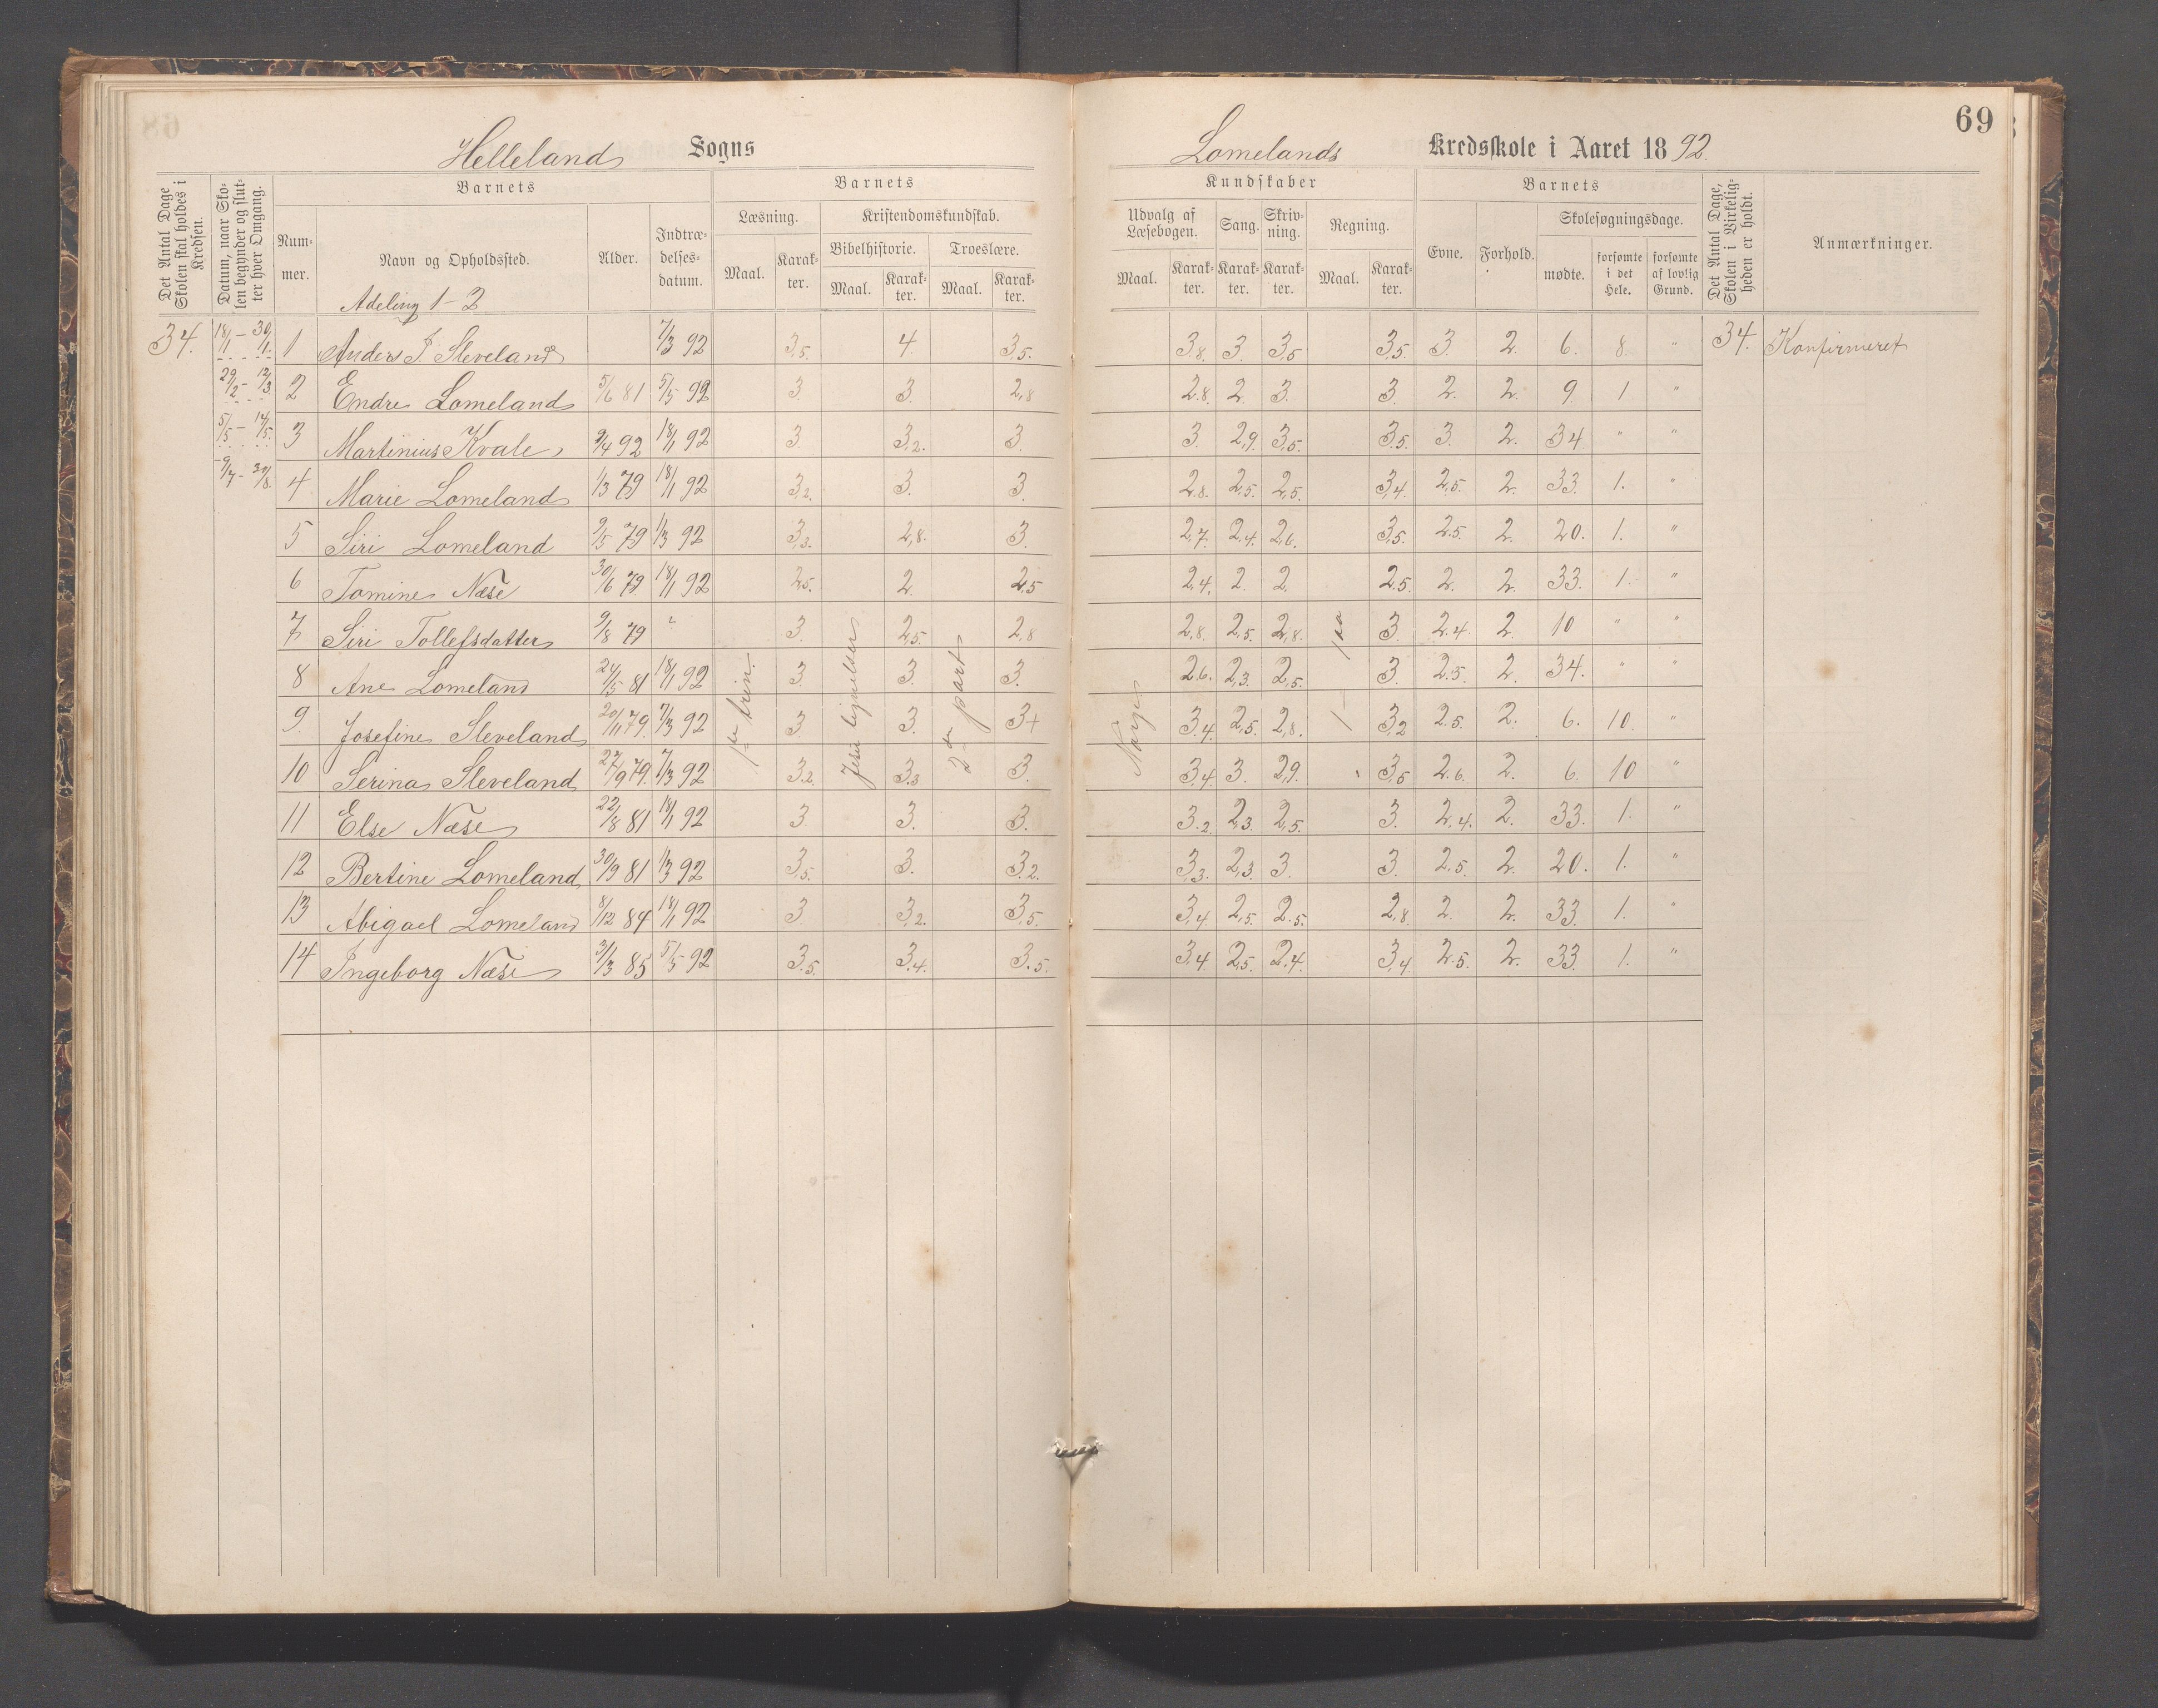 69
Helleland Sogns
Lomelands Kredsskole i Aaret 1892.
Det Antal Dage Skolen skal holdes i Kredsen.
Datum, naar Skolen begynder og slutter hver Omgang.
Barnets
Nummer.
Navn og Opholdssted.
Alder.
Indtrædelsesdatum.
Barnets
Læsning.
Maal.
Karakter.
Kristendomskundskab.
Bibelhistorie.
Maal.
Karakter.
Troeslære.
Maal.
Karakter.
Kundskaber
Udvalg af Læsebogen.
Maal.
Karakter.
Sang.
Karakter.
Skrivning.
Karakter.
Regning.
Maal.
Karakter.
Barnets
Evne.
Forhold.
Skolesøgningsdage.
mødte.
forsømte i det Hele.
forsømte af lovlig Grund.
Det Antal Dage, Skolen i Virkeligheden er holdt.
Anmærkninger.
Adeling 1-2
34. 18/1 - 30/1. 1 Anders J. Sleveland 7/3 92 3,5. 4. 3,5. 3,8. 3. 3,5 3,5. 3. 2. 6. 8. " 34. Konfirmeret
29/2 - 12/3. 2 Endre Lomeland 5/6 81 5/5 92 3. 3. 2,8 2,8. 2. 3. 3. 2. 2. 9. 1 "
5/5 - 14/5. 3 Martinius Kvale 9/4 92 18/1 92 3 3,2. 3. 3. 2,9. 3,5. 3,5. 3. 2. 34 " "
4 Marie Lomeland 1/3 79 18/1 92 3,2. 3. 3. 2,8. 2,5. 2,5. 3,4. 2,5. 2. 33. 1. "
5 Siri Lomeland 9/5 79 1/3 92 3,3. 2,8. 3. 2,7. 2,4. 2,6. 3,5. 2,5. 2. 20. 1. "
6 Tomine Næse 30/6 79 18/1 92 2,5. 2. 2,5 2,4. 2. 2. 2,5. 2. 2. 33. 1. "
7 Siri Tollefsdatter 9/8 79 " 3. 2,5. 2,8 2,8. 2,5. 2,8. 3. 2,4. 2. 10 " "
8 Ane Lomeland 24/5 81 18/1 92 3. 3. 3. 2,6. 2,3. 2,5. 3. 2,5. 2. 34. " "
9. Josefine Sleveland 20/11 79. 7/3 92 3. 3. 3+ 3,4. 2,5. 2,8. 3,2 2,5. 2. 6. 10. "
10 Serina Sleveland 27/9 79. 7/3 92 3,2. 3,3 3. 3,4. 3. 2,9. 3,5 2,6. 2. 6. 10 "
11 Else Næse 22/8 81 18/1 92 3. 3. 3. 3,2. 2,3. 2,5. 3. 2,4. 2. 33. 1. "
12 Bertine Lomeland 30/9 81 1/3 92 3,5. 3. 3,2. 3,3. 2,3. 3. 3. 2,5. 2. 20. 1. "
13 Abigael Lomeland 8/12 84 18/1 92 3. 3,2. 3,5. 3,4. 2,5. 2,5. 2,8. 2. 2. 33. 1. "
14 Ingeborg Næse 3/3 85 5/5 92 3,5. 3,4. 3,5. 3,4. 2,5. 2,4. 3,4. 2,5. 2. 33. 1. "
1ste trin.
Jesu lignelser
2den part
Norge